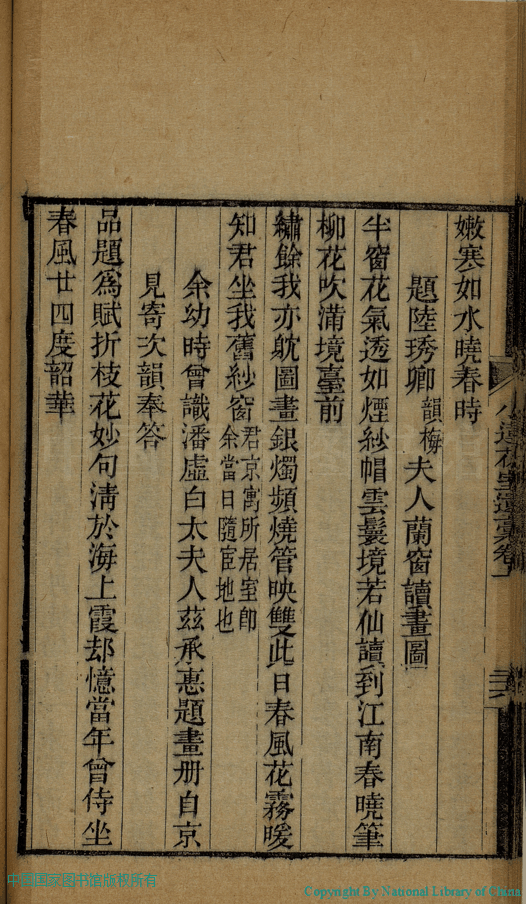 嫩寒如水曉春時
題陸琇卿韻梅夫人蘭窗讀畫圖
半窗花氣透如煙紗帽雲鬟境若仙讀到江南春曉筆
柳花吹滿境臺前
繡餘我亦躭圖畫銀燭頻燒管映雙此日春風花霧暖
知君坐我舊紗窗君京寓所居室卽余當日隨宦地也
余幼時曾識潘虛白太夫人茲承惠題畫册自京
見寄次韻奉答
品題爲賦折枝花妙句淸於海上霞却憶當年曾侍坐
春風廿四度韶華
中国国家图书馆版权所有
Copyright By National Library of China